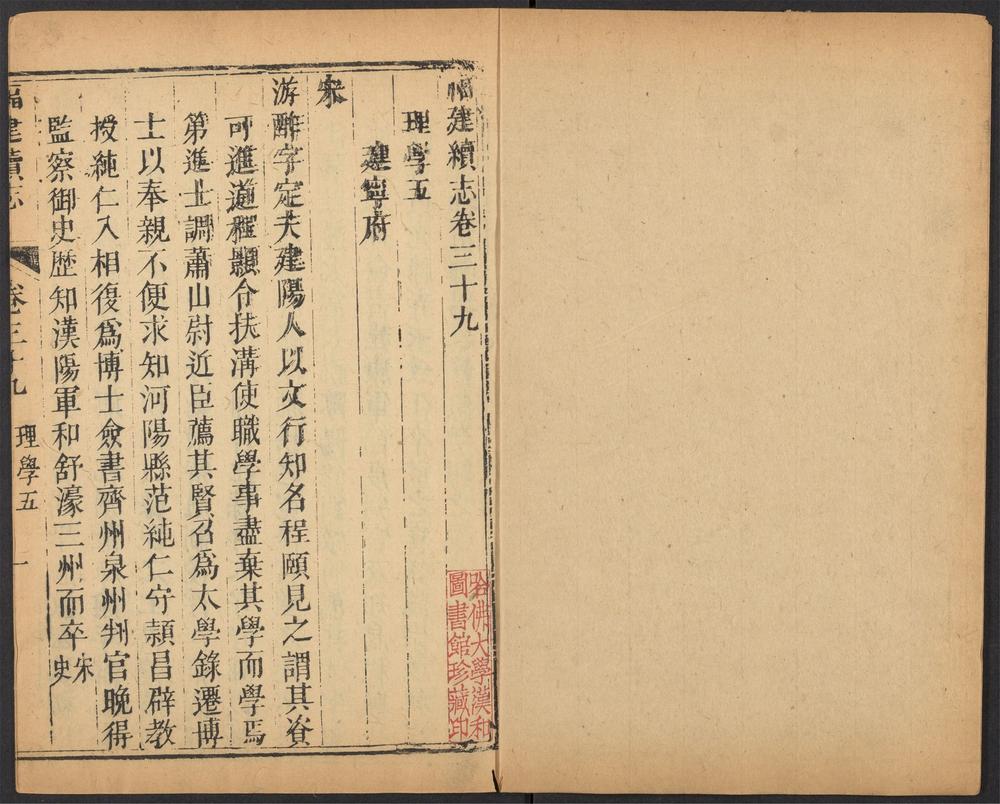 福建續志卷三十九
理學五
建寧府
宋
游酢字定夫建陽人以文行知名程頤見之謂其資
可進道程顥令扶溝使職學事盡棄其學而學焉
第進士調蕭山尉近臣薦其賢召爲太學錄遷博
士以奉親不便求知河陽縣范純仁守潁昌辟教
授純仁入相復爲博士僉書齊州泉州判官晚得
監察御史歷知漢陽軍和舒濠三州而卒宋史
福建續志 卷三十九 理學五 一
哈佛大學漢和
圖書館珍藏印